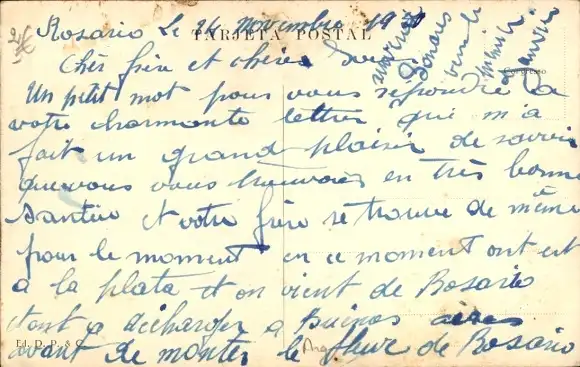 Rosario Le 24 novembre 19
TARJETA POSTAL
Cher frère et chère
Un petit mot pour vous repondre a
votre charmante lettre qui m'a
fait un grand plaisir de savoir
que vous vous trouvais en très bonne
santée et votre frère se trouve de même
pour le moment en ce moment ont est
a la plata et on vient de Rosario
a décharger a Buenos aeres
Ed. D. P. & C.
avant de monter le fleuve de Rosario